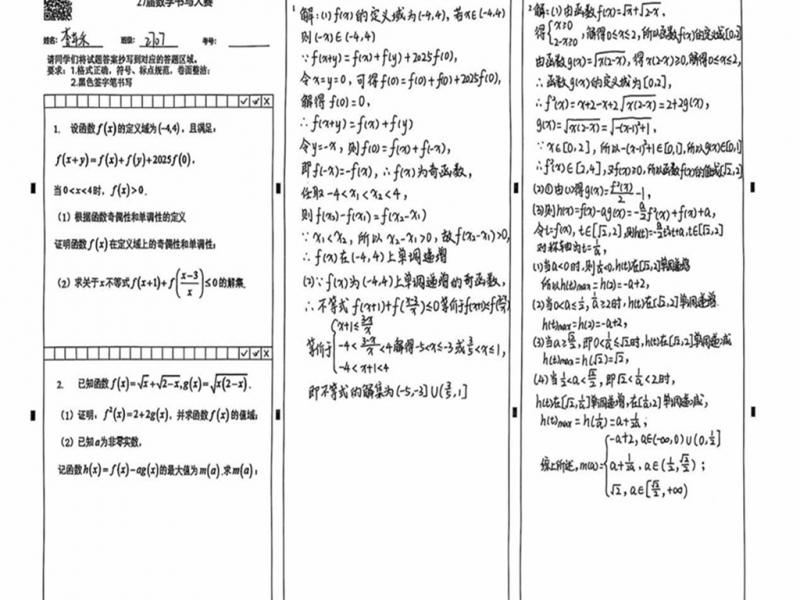 27届数学书写大赛
姓名: 班级: 2707 考号:
请同学们将试题答案抄写到对应的答题区域。
要求：1.格式正确，符号、标点规范，卷面整洁；
2.黑色签字笔书写
1. 设函数f(x)的定义域为(-4,4)，且满足：
f(x+y)=f(x)+f(y)+2025f(0)，
当0<x<4时，f(x)>0.
（1）根据函数奇偶性和单调性的定义
证明函数f(x)在定义域上的奇偶性和单调性；
（2）求关于x不等式f(x+1)+f((x-3)/x)≤0的解集.
2. 已知函数f(x)=√x+√(2-x),g(x)=√(x(2-x)).
（1）证明：f²(x)=2+2g(x)，并求函数f(x)的值域；
（2）已知a为非零实数，
记函数h(x)=f(x)-ag(x)的最大值为m(a).求m(a)；
1
解:(1)f(x)的定义域为(-4,4),若x∈(-4,4)
则(-x)∈(-4,4)
∵f(x+y)=f(x)+f(y)+2025f(0),
令x=y=0,可得f(0)=f(0)+f(0)+2025f(0),
解得f(0)=0,
∴f(x+y)=f(x)+f(y)
令y=-x,则f(0)=f(x)+f(-x),
即f(-x)=-f(x),∴f(x)为奇函数,
任取-4<x₁<x₂<4,
则f(x₂)-f(x₁)=f(x₂-x₁)
∵x₁<x₂,所以x₂-x₁>0,故f(x₂-x₁)>0,
∴f(x)在(-4,4)上单调递增
(2)∵f(x)为(-4,4)上单调递增的奇函数,
∴不等式f(x+1)+f((x-3)/x)≤0等价于f(x+1)≤f((3-x)/x)
x+1≤(3-x)/x
等价于 -4<(3-x)/x<4解得-5<x≤-3或3/5<x≤1,
-4<x+1<4
即不等式的解集为(-5,-3]∪(3/5,1]
2
解:(1)由函数f(x)=√x+√(2-x),
得{x≥0 2-x≥0,解得0≤x≤2,所以函数f(x)的定义域[0,2]
由函数g(x)=√(x(2-x)),得x(2-x)≥0,解得0≤x≤2,
∴函数g(x)的定义域为[0,2],
∴f²(x)=x+2-x+2√(x(2-x))=2+2g(x),
g(x)=√(x(2-x))=√(-(x-1)²+1),
∵x∈[0,2],所以-(x-1)²+1∈[0,1],所以g(x)∈[0,1]
∴f²(x)∈[2,4],又f(x)≥0,所以函数f(x)的值域[√2,2]
(2)①由(1)得g(x)=f²(x)/2-1,
(2)则h(x)=f(x)-ag(x)=-a/2f²(x)+f(x)+a,
令t=f(x),t∈[√2,2],则h(t)=-a/2t²+t+a,t∈[√2,2]
对称轴为t=1/a,
(1)当a<0时,则1/a<0,h(t)在[√2,2]单调递增
所以h(t)max=h(2)=-a+2,
(2)当0<a≤1/2,1/a≥2时,h(t)在[√2,2]单调递增
h(t)max=h(2)=-a+2,
(3)当a≥√2/2,即0<1/a≤√2时,h(t)在[√2,2]单调递减
h(t)max=h(√2)=√2,
(4)当1/2<a<√2/2,即√2<1/a<2时,
h(t)在[√2,1/a]单调递增,在[1/a,2]单调递减,
h(t)max=h(1/a)=a+1/2a,
-a+2,a∈(-∞,0)∪(0,1/2]
综上所述,m(a)={a+1/2a,a∈(1/2,√2/2);
√2,a∈[√2/2,+∞)